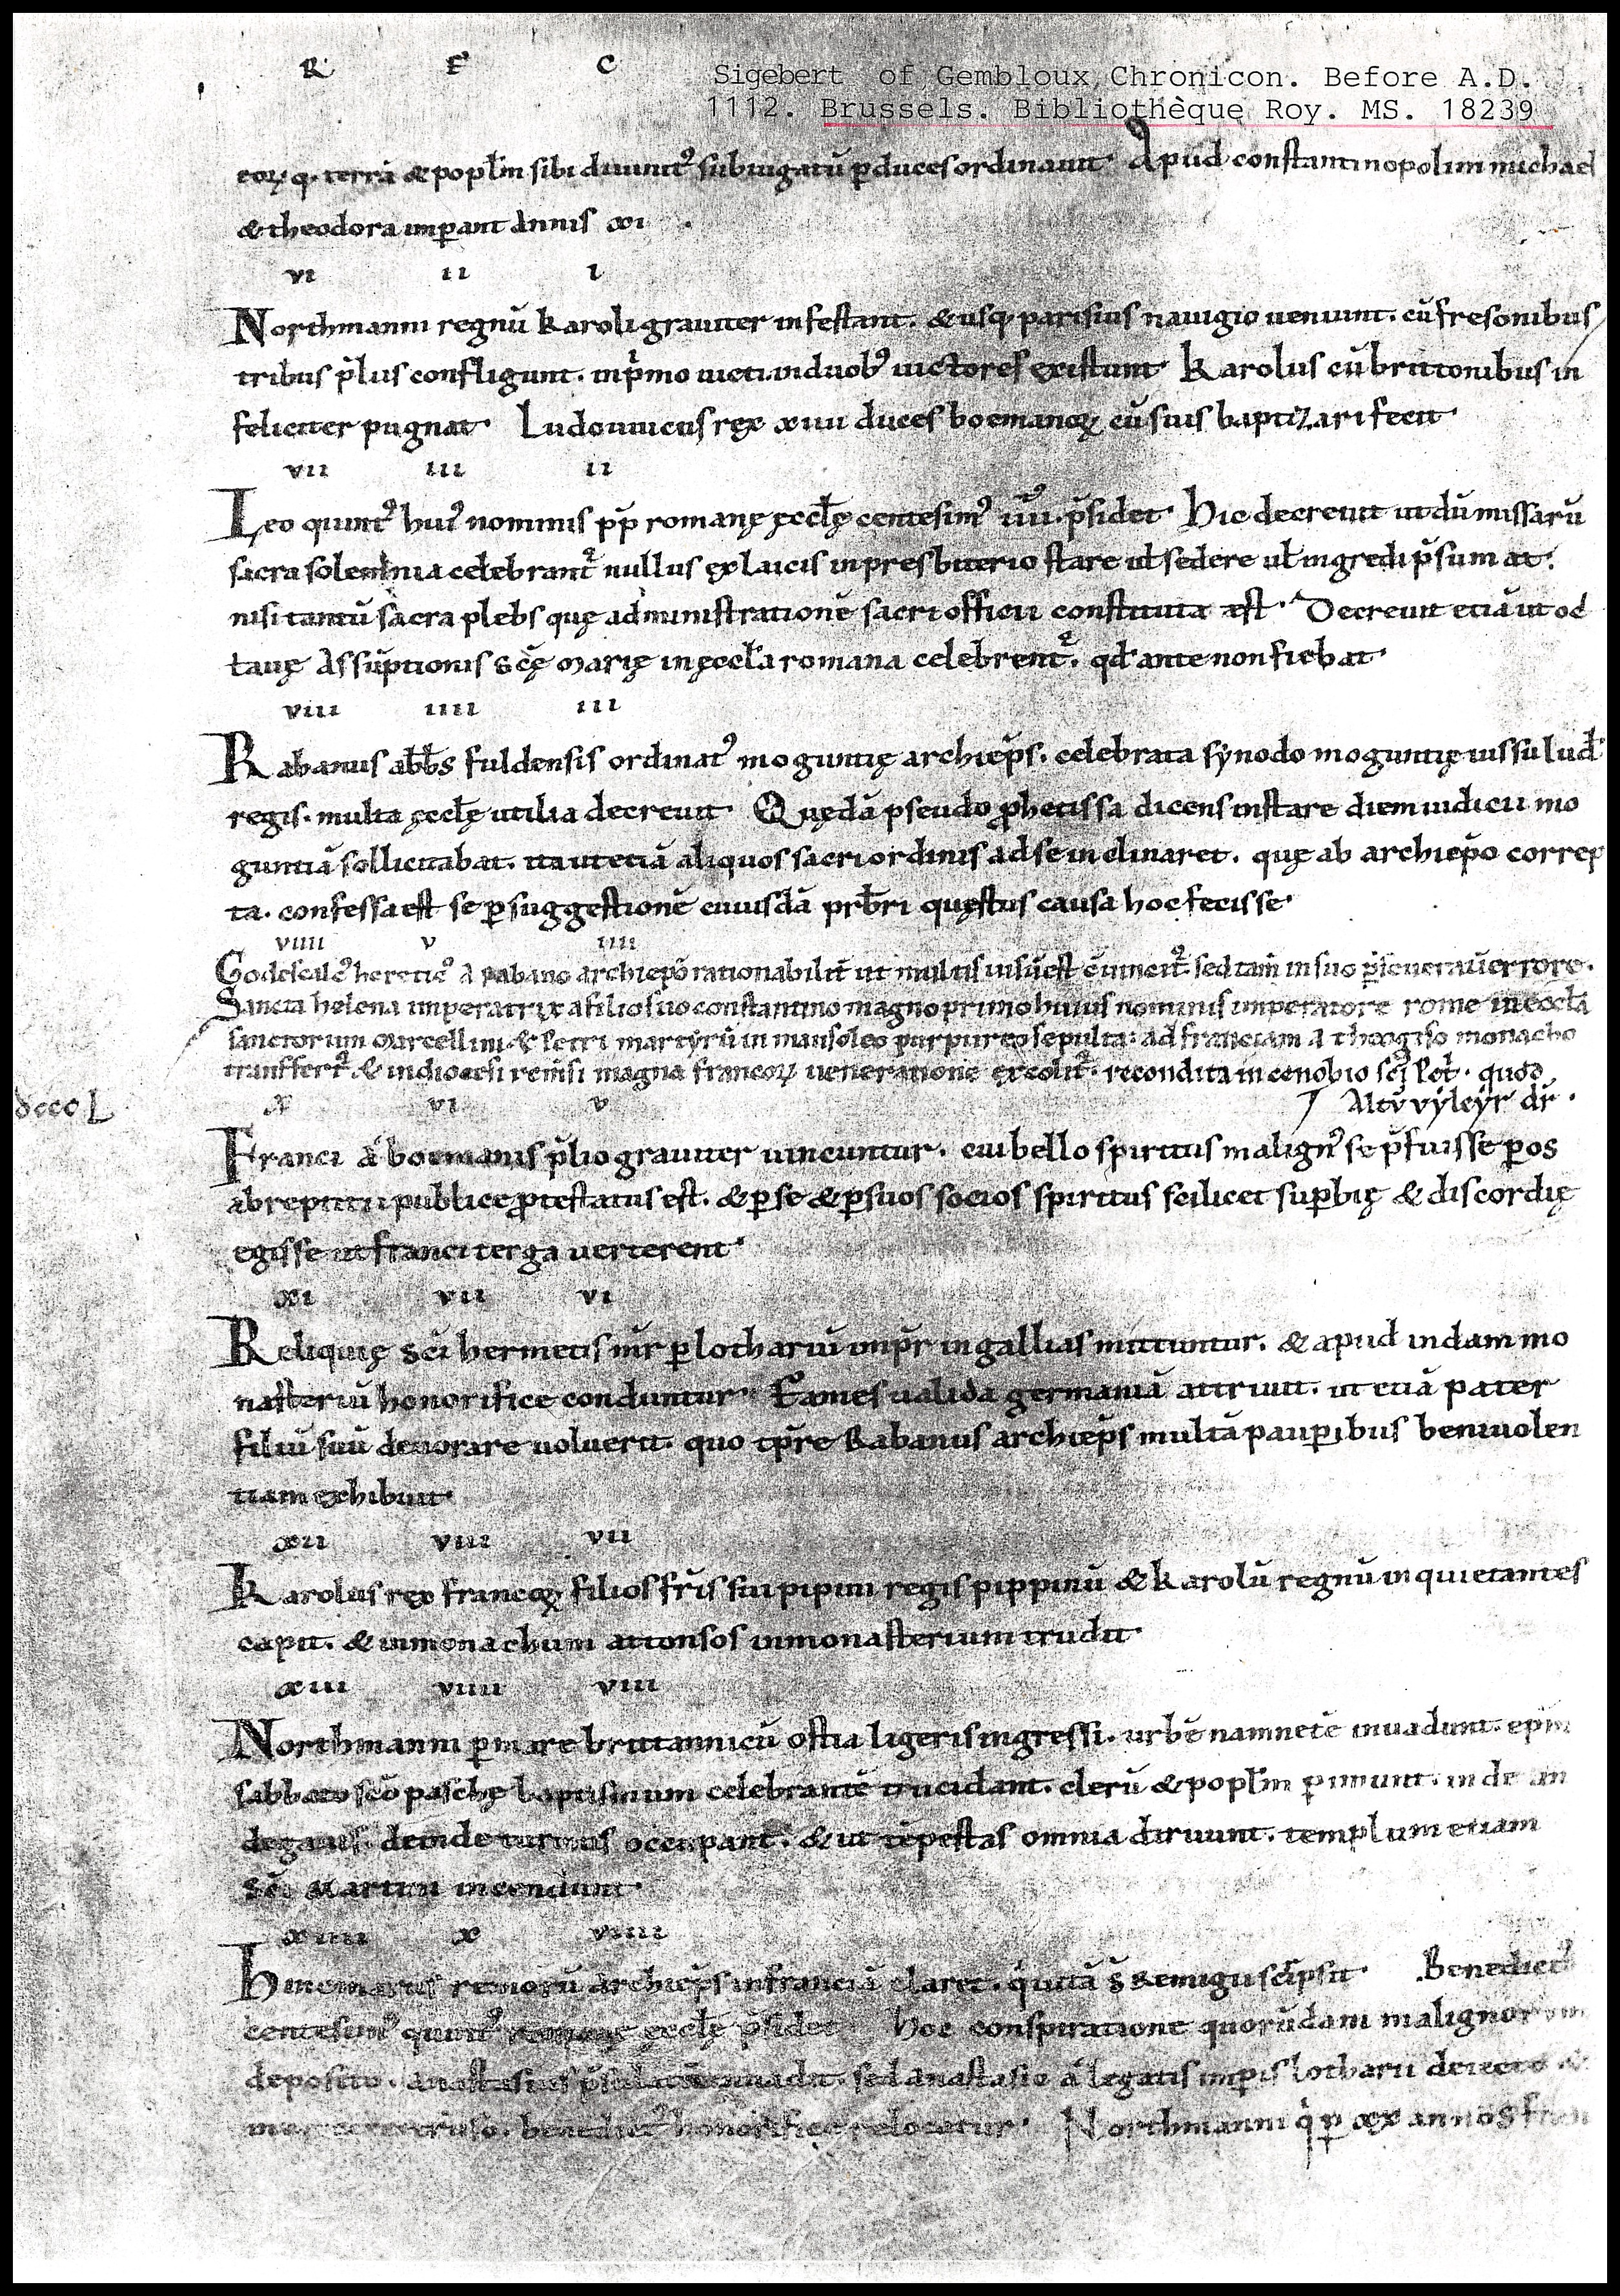 R F C
Sigebert of Gembloux, Chronicon. Before A.D.
1112. Brussels. Bibliothèque Roy. MS. 18239
eoꝝ q· terrā & popl̄m sibi diuinitꝰ subiugatū ꝑ duces ordinauit· Apud constantinopolim michael
& theodora imꝑant annis xi ·
vi ii i
Northmanni regnū karoli grauiter infestant. & usq; parisius nauigio ueniunt. cū fresonibus
tribus p̄lus confligunt. inp̄mo uicti. induobꝰ uictores existunt· Karolus cū brittonibus in
feliciter pugnat· Ludouuicus rex xiiii duces boemanoꝝ cū suis baptizari fecit·
vii iii ii
Leo quintꝰ huiꝰ nominis pp̄ romanę ęccl̄ę centesimꝰ iiiiꝰ. p̄sidet· Hic decreuit ut dū missarū
sacra solemnia celebrant᷑ nullus ex laicis in presbiterio stare ul̄ sedere ul̄ ingredi p̄sumat.
nisi tantū sacra plebs quę administrationē sacri officii constituta ęst· Decreuit etiā ut oc
tauę Assūptionis s̄cę Marię in ęccl̄a romana celebrent᷑. qd̄ ante non fiebat·
viii iiii iii
Rabanus abb̄s fuldensis ordinatꝰ moguntię archiep̄s. celebrata synodo moguntię iussu lud̄
regis. multa ęccl̄ę utilia decreuit· Quędā pseudo ꝓphetissa dicens instare diem iudicii mo
guntiā sollicitabat. ita ut etiā aliquos sacri ordinis ad se inclinaret. quę ab archiep̄o correp
ta. confessa est se ꝑ suggestionē cuiusdā prb̄ri quęstus causa hoc fecisse·
viiii v iiii
Godescalcꝰ hereticꝰ a rabano archiep̄o rationabilit̄ ut multis uisū est
Sancta helena imperatrix a filio suo constantino magno primo huius nominis imperatore rome in eccl̄a
sanctorum Marcellini & Petri martyrū in mausoleo purpureo sepulta: ad franciam a theogiso monacho
transfert᷑. & in diocesi remēsi magna francoꝝ ueneratione excolit᷑. recondita in cenobio sc̄i Pet̄. quod
Altū vyleyr dr̄ ·
dcccL x vi v
Franci a boemanis p̄lio grauiter uincuntur. cui bello spiritus malignꝰ se p̄fuisse ꝑ os
abreptitii publice ꝓtestatus est. & ꝑ se & ꝑ suos socios spiritus scilicet suꝑbię & discordię
egisse ut franci terga uerterent·
xi vii vi
Reliquię s̄ci hermetis mr̄ ꝑ lothariū imp̄r in gallias mittuntur. & apud indam mo
nasteriū honorifice conduntur· Fames ualida germaniā attriuit. ut etiā pater
filiū suū deuorare uoluerit. quo tp̄re Rabanus archiep̄s multā pauꝑibus beniuolen
tiam exhibuit·
xii viii vii
Karolus rex francoꝝ filios fr̄is sui pipini regis pippinū & karolū regnū inquietantes
capit. & in monachum attonsos in monasterium trudit·
xiii viiii viii
Northmanni ꝑ mare brittannicū ostia ligeris ingressi. urbē namnetē inuadunt. ep̄m
sabbato s̄co paschę baptismum celebrantē trucidant. clerū & popl̄m ꝑimunt. inde an
degauis deinde turonis occupant. & ut tēpestas omnia diruunt. templum etiam
s̄ci Martini incendunt·
xiiii x viiii
Hincmarus remorū archiep̄s in franciā claret. qͥ uitā s̄ Remigii sc̄ipsit· Benedictꝰ
centesimꝰ quintꝰ romanę ęccl̄ę p̄sidet· Hoc conspiratione quorūdam malignorum
deposito. anastasius inuadit. sed anastasio a legatis imꝑis lotharii deiecto &
benedictꝰ honorifice relocatur· Northmanni qͥ ꝑ xx annos fran